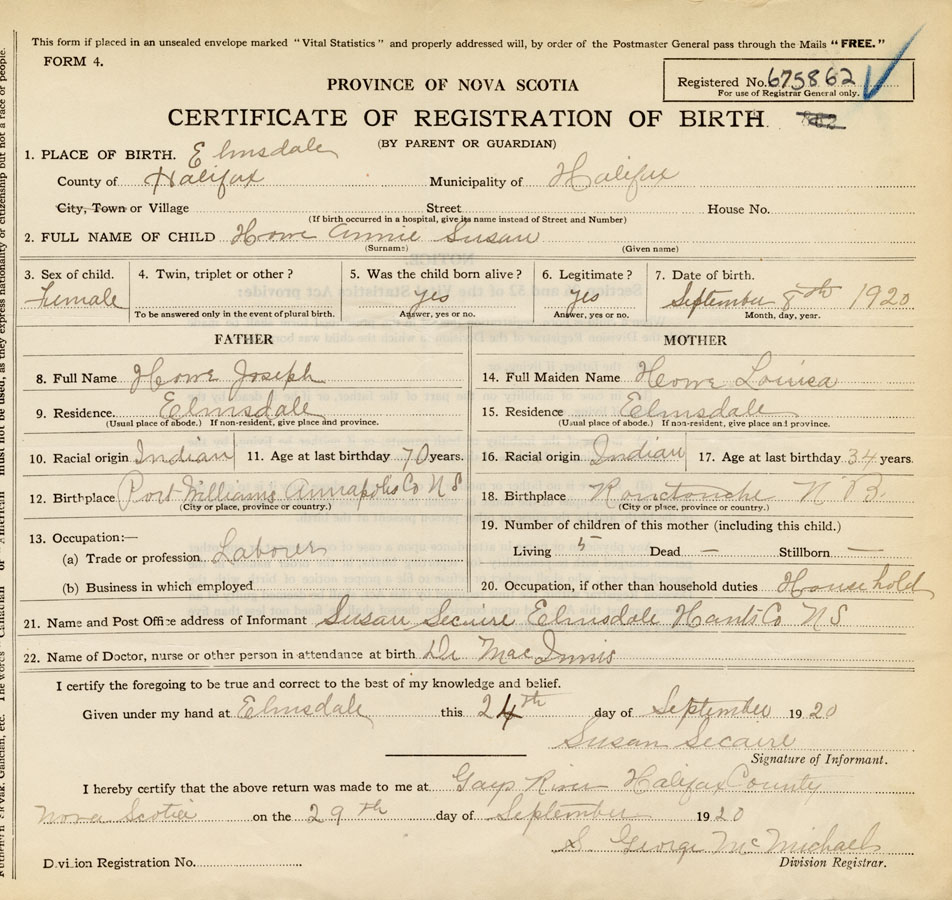 This form if placed in an unsealed envelope marked "Vital Statistics" and properly addressed will, by order of the Postmaster General pass through the Mails "FREE."
FORM 4.
PROVINCE OF NOVA SCOTIA
Registered No. 675862
For use of Registrar General only.
CERTIFICATE OF REGISTRATION OF BIRTH.
(BY PARENT OR GUARDIAN)
1. PLACE OF BIRTH. Elmsdale
County of Halifax Municipality of Halifax
City, Town or Village Street House No.
(If birth occurred in a hospital, give its name instead of Street and Number)
2. FULL NAME OF CHILD Howe Annie Susan
(Surname) (Given name)
3. Sex of child. 4. Twin, triplet or other? 5. Was the child born alive? 6. Legitimate? 7. Date of birth.
Female yes yes September 8th 1920
To be answered only in the event of plural birth. Answer, yes or no. Answer, yes or no. Month, day, year.
FATHER MOTHER
8. Full Name Howe Joseph 14. Full Maiden Name Howe Louisa
9. Residence. Elmsdale 15. Residence Elmsdale
(Usual place of abode.) If non-resident, give place and province. (Usual place of abode.) If non-resident, give place and province.
10. Racial origin Indian 11. Age at last birthday 70 years. 16. Racial origin Indian 17. Age at last birthday 34 years.
12. Birthplace Port Williams Annapolis Co N S 18. Birthplace N. B.
(City or place, province or country.) (City or place, province or country.)
19. Number of children of this mother (including this child.)
13. Occupation:—
(a) Trade or profession Laborer Living 5 Dead — Stillborn —
(b) Business in which employed 20. Occupation, if other than household duties Household
21. Name and Post Office address of Informant Susan Secaire Elmsdale Hants Co N S
22. Name of Doctor, nurse or other person in attendance at birth Dr MacInnis
I certify the foregoing to be true and correct to the best of my knowledge and belief.
Given under my hand at Elmsdale this 24th day of September 1920
Susan Secaire
Signature of Informant.
I hereby certify that the above return was made to me at Gays River Halifax County
Nova Scotia on the 29th day of September 1920
S. George McMichael
Division Registrar No. Division Registrar.